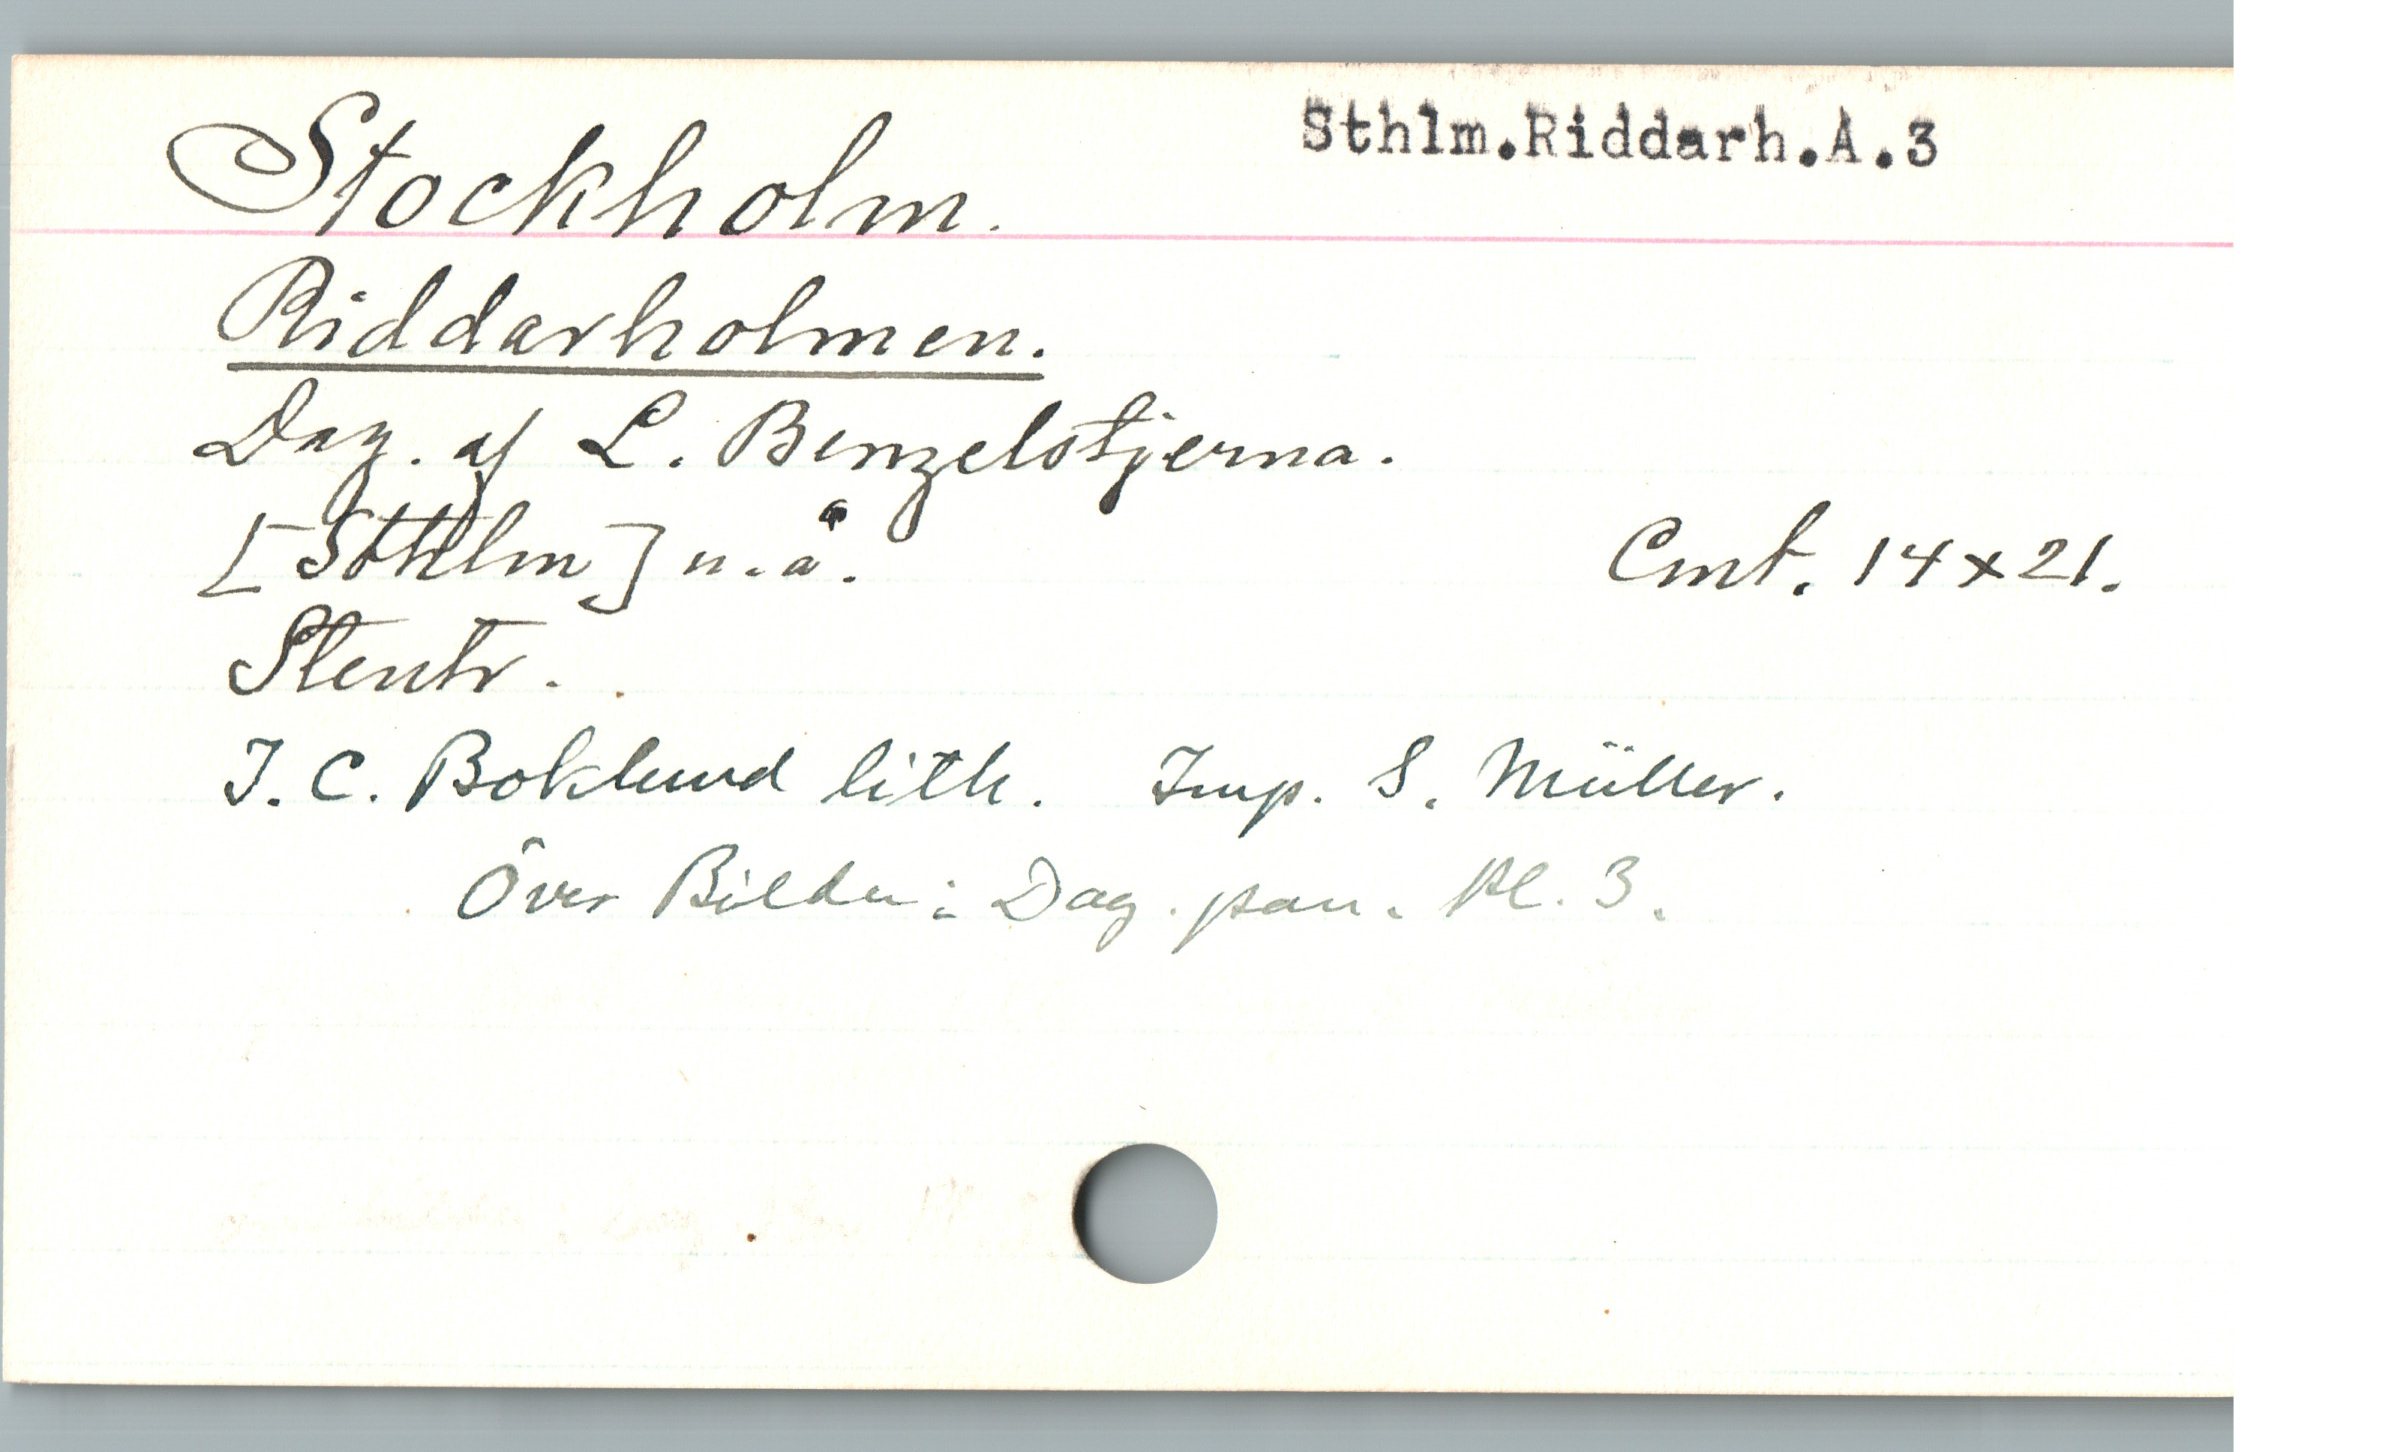 Sthlm.Riddarh.A.3
Stockholm.
Riddarholmen.
Dag. af L. Benzelstjerna.
[Sthlm] u.å.
Cmt. 14x21.
Stentr.
J. C. Boklund lith. Imp. S. Müller.
Över Bilden: Dag. pan. Pl. 3.